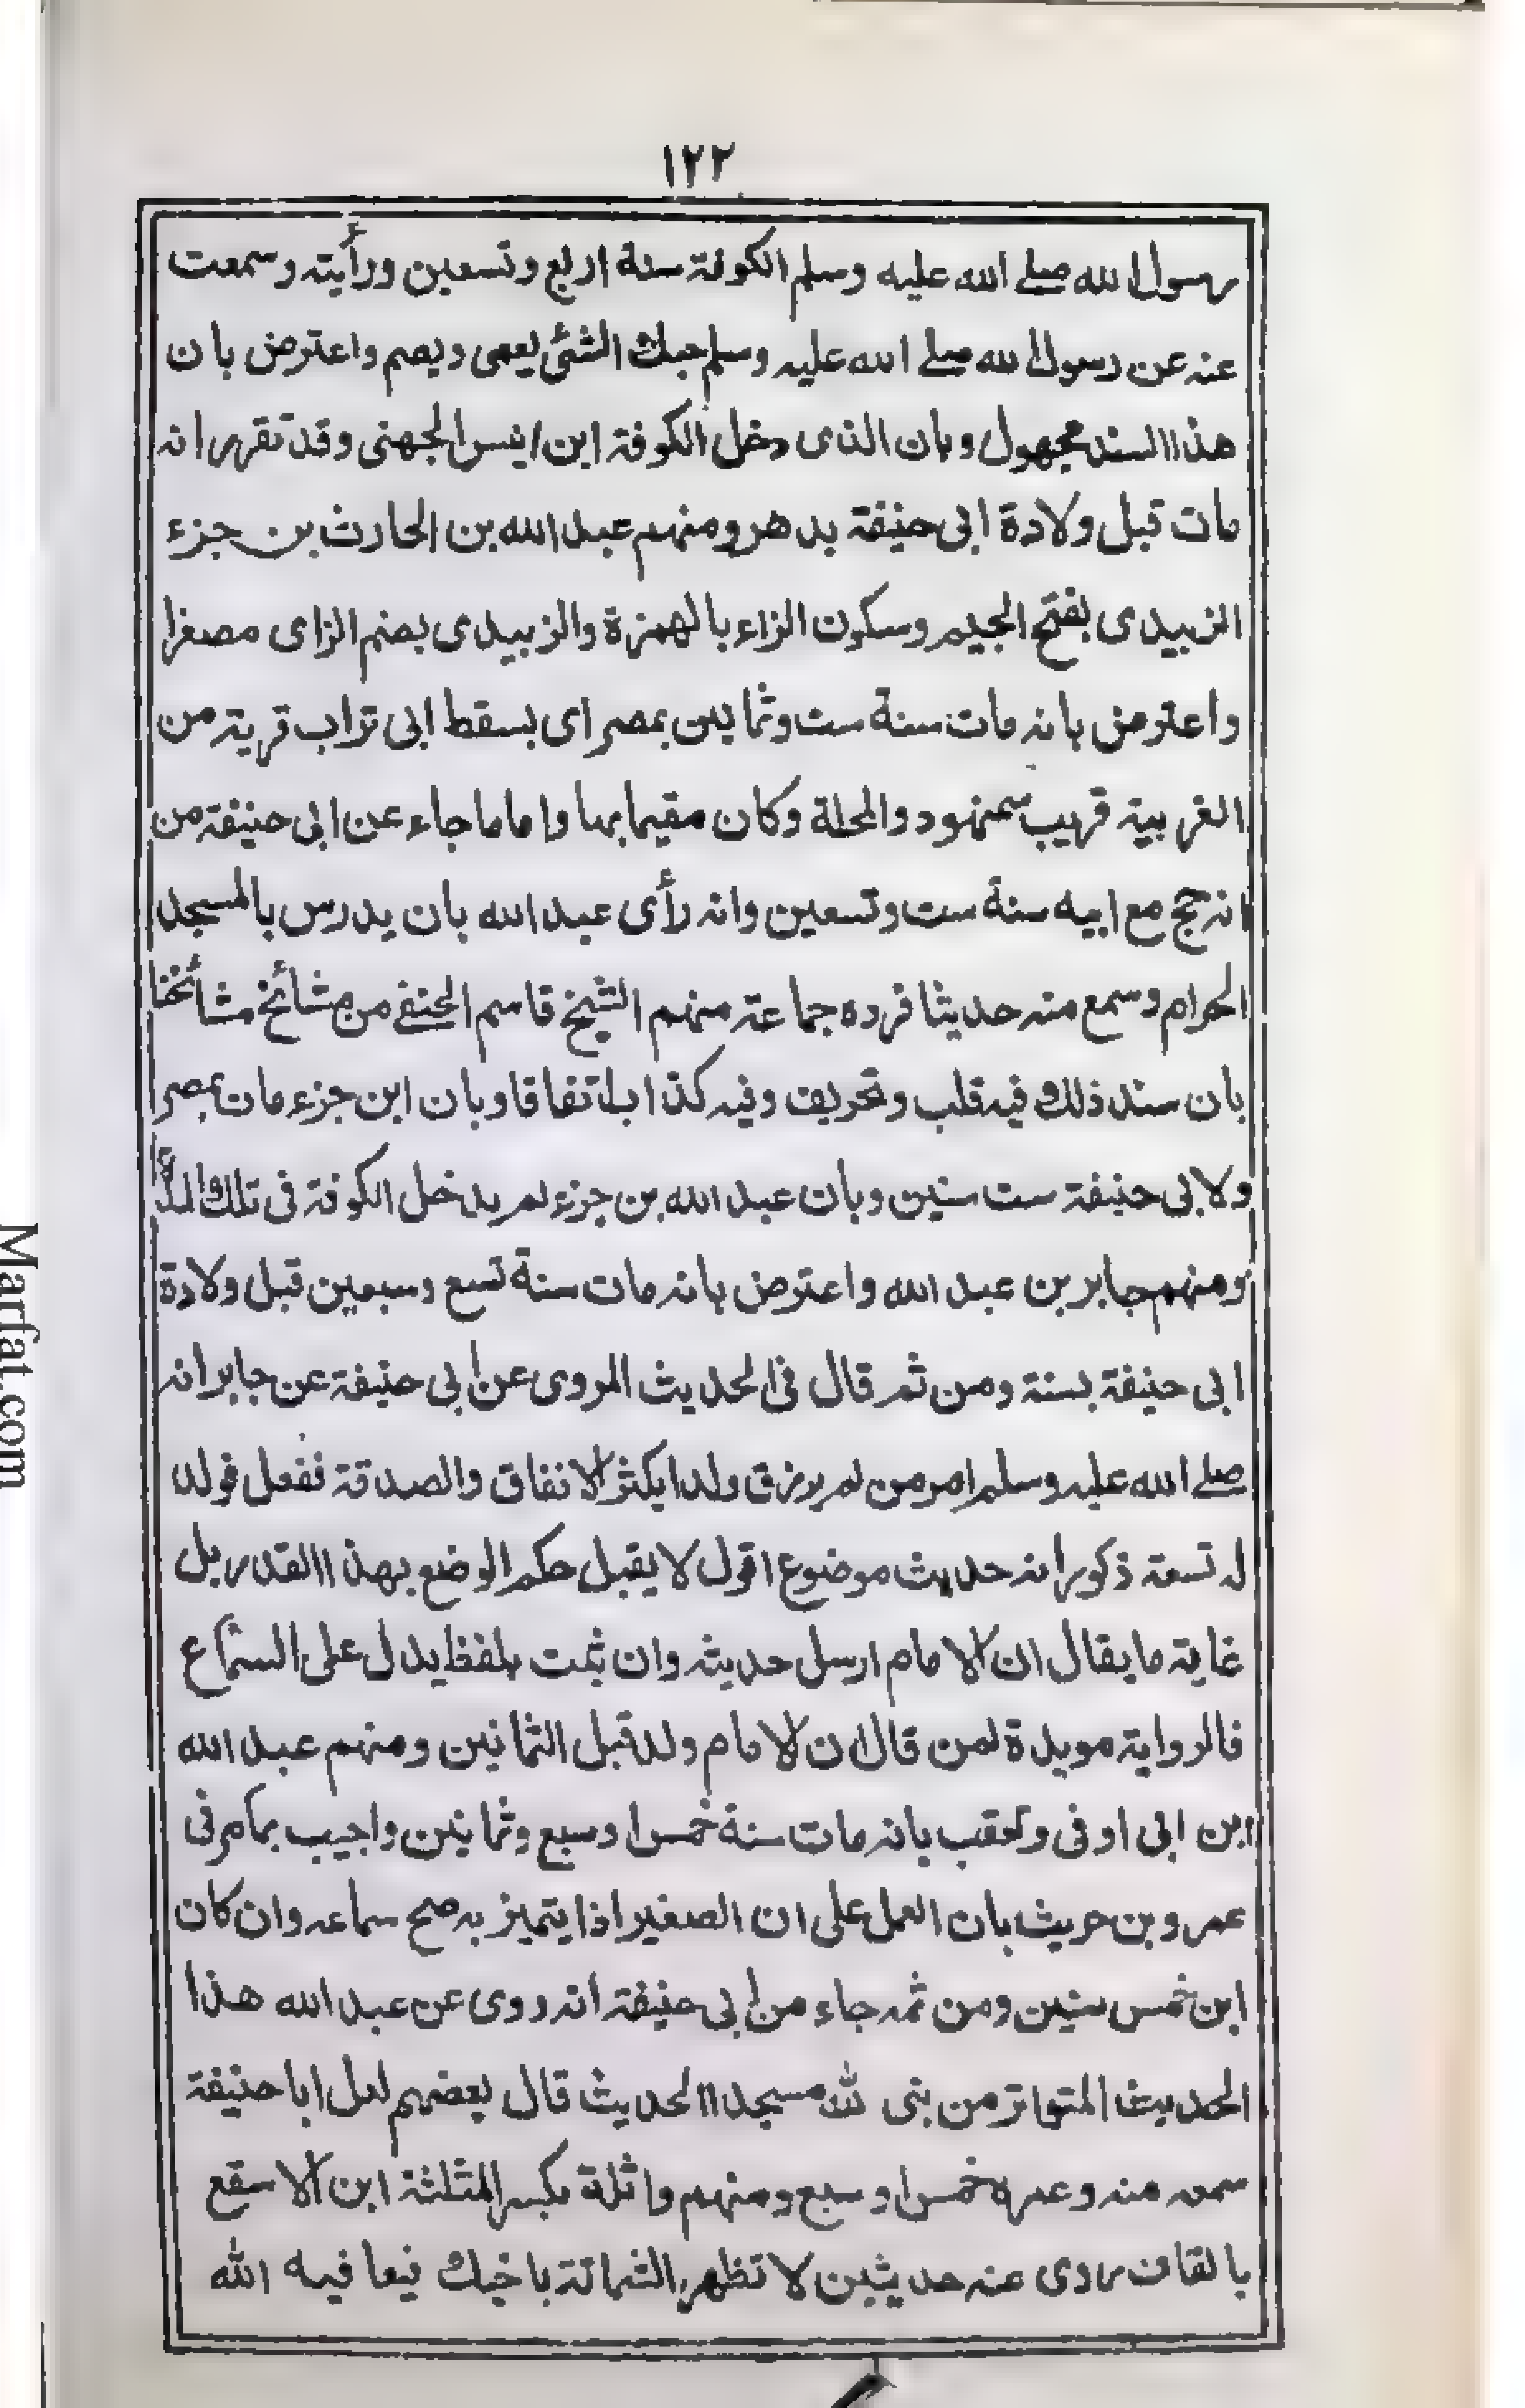 ١٢٢
رسول الله صلے الله عليه وسلم الكوفة سنة اربع وتسعين ورأيته وسمعت
عنه عن رسول الله صلے الله عليه وسلم حبك الشئ يعمى ويصم واعترض بان
هذا السند مجهول وبان الذى دخل الكوفة ابن انيس الجهنى وقد تقرر انه
مات قبل ولادة ابى حنيفة بدهر ومنهم عبد الله بن الحارث بن جزء
الزبيدى بفتح الجيم وسكون الزاء بالهمزة والزبيدى بضم الزاى مصغرا
واعترض بانه مات سنة ست وثمانين بمصر اى بسقط ابى تراب قرية من
الغربية قريب سمنهود والمحلة وكان مقيما بها واما ما جاء عن ابى حنيفة من
انه حج مع ابيه سنة ست وتسعين وانه رأى عبد الله بان يدرس بالمسجد
الحرام وسمع منه حديثا فرده جماعة منهم الشيخ قاسم الحنفے من مشائخ مشائخنا
بان سند ذلك فيه قلب وتحريف وفيه كذاب اتفاقا وبان ابن جزء مات بمصر
ولابى حنيفة ست سنين وبان عبد الله بن جزء لم يدخل الكوفة فى تلك المدة
ومنهم جابر بن عبد الله واعترض بانه مات سنة تسع وسبعين قبل ولادة
ابى حنيفة بسنة ومن ثم قال فى الحديث المروى عن ابى حنيفة عن جابر انه
صلے الله عليه وسلم امر من لم يرزق ولدا يكثر الانفاق والصدقة ففعل فولد
له تسعة ذكور انه حديث موضوع اقول لا يقبل حكم الوضع بهذا القدر بل
غاية ما يقال ان الامام ارسل حديثه وان ثبت بلفظ يدل على السماع
فالرواية مويدة لمن قال ان الامام ولد قبل الثمانين ومنهم عبد الله
ابن ابى اوفى وتعقب بانه مات سنة خمس او سبع وثمانين واجيب بما مر فى
عمرو بن حريث بان العمل على ان الصغير اذا يتميز به صح سماعه وان كان
ابن خمس سنين ومن ثمه جاء من ابى حنيفة انه روى عن عبد الله هذا
الحديث المتواتر من بنى لله مسجدا الحديث قال بعضهم لعل ابا حنيفة
سمعه منه وعمره خمس او سبع ومنهم واثلة بكسر المثلثة ابن الاسقع
بالقاف روى عنه حديثين لا تظهر الشماتة باخيك فيعافيه الله
Marfat.com